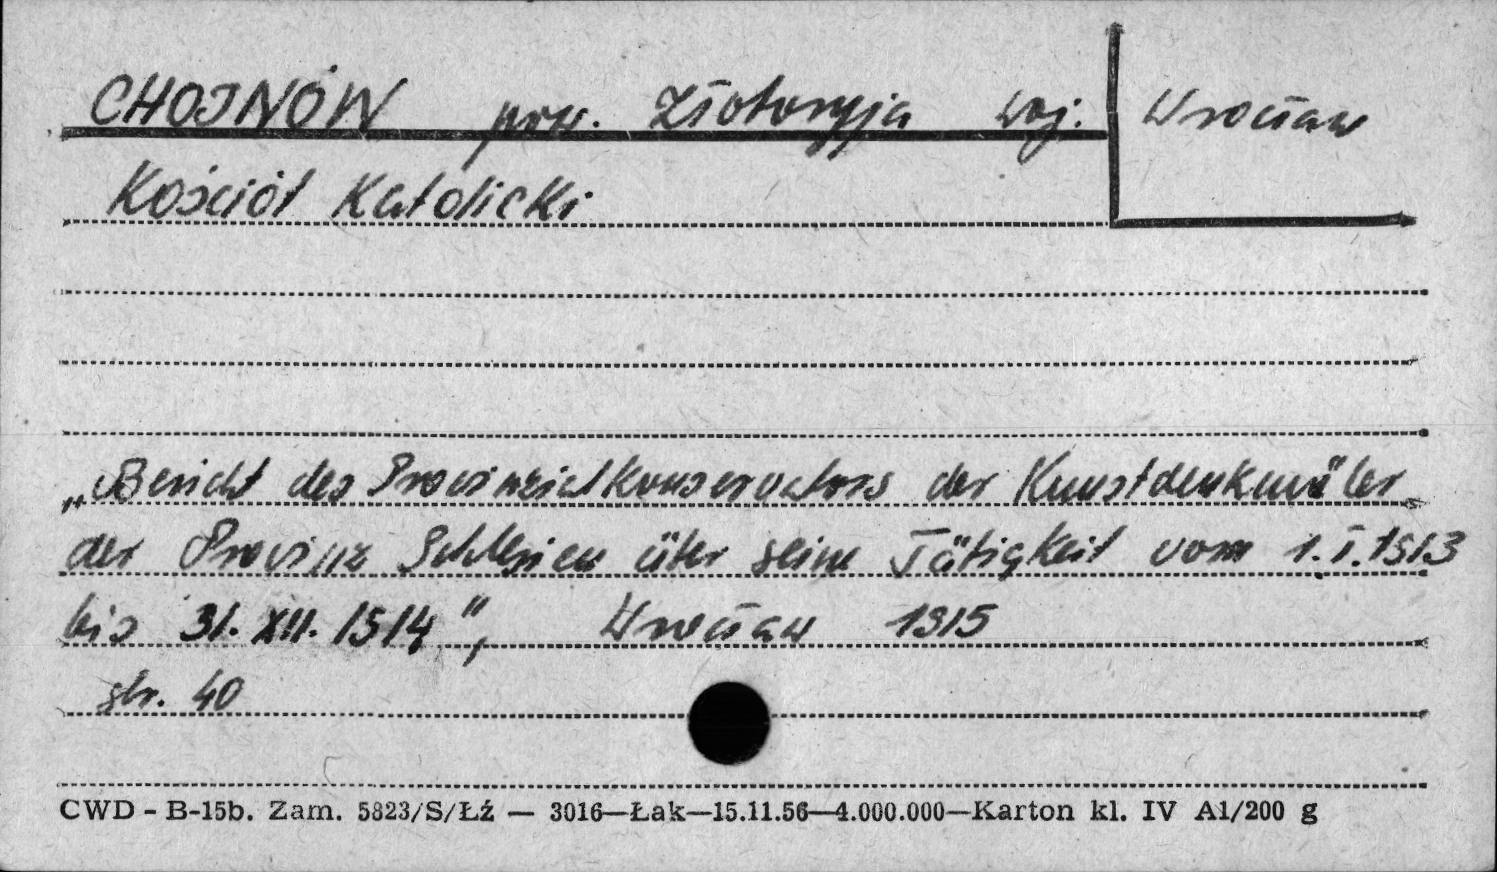 CHOJNÓW pow. Złotoryja woj. Wrocław
Kościół Katolicki
„Bericht des Provinzialkonservators der Kunstdenkmäler
der Provinz Schlesien über seine Tätigkeit vom 1.I.1913
bis 31.XII.1914", Wrocław 1915
str. 40
CWD - B-15b. Zam. 5823/S/Łź — 3016—Łak—15.11.56—4.000.000—Karton kl. IV A1/200 g